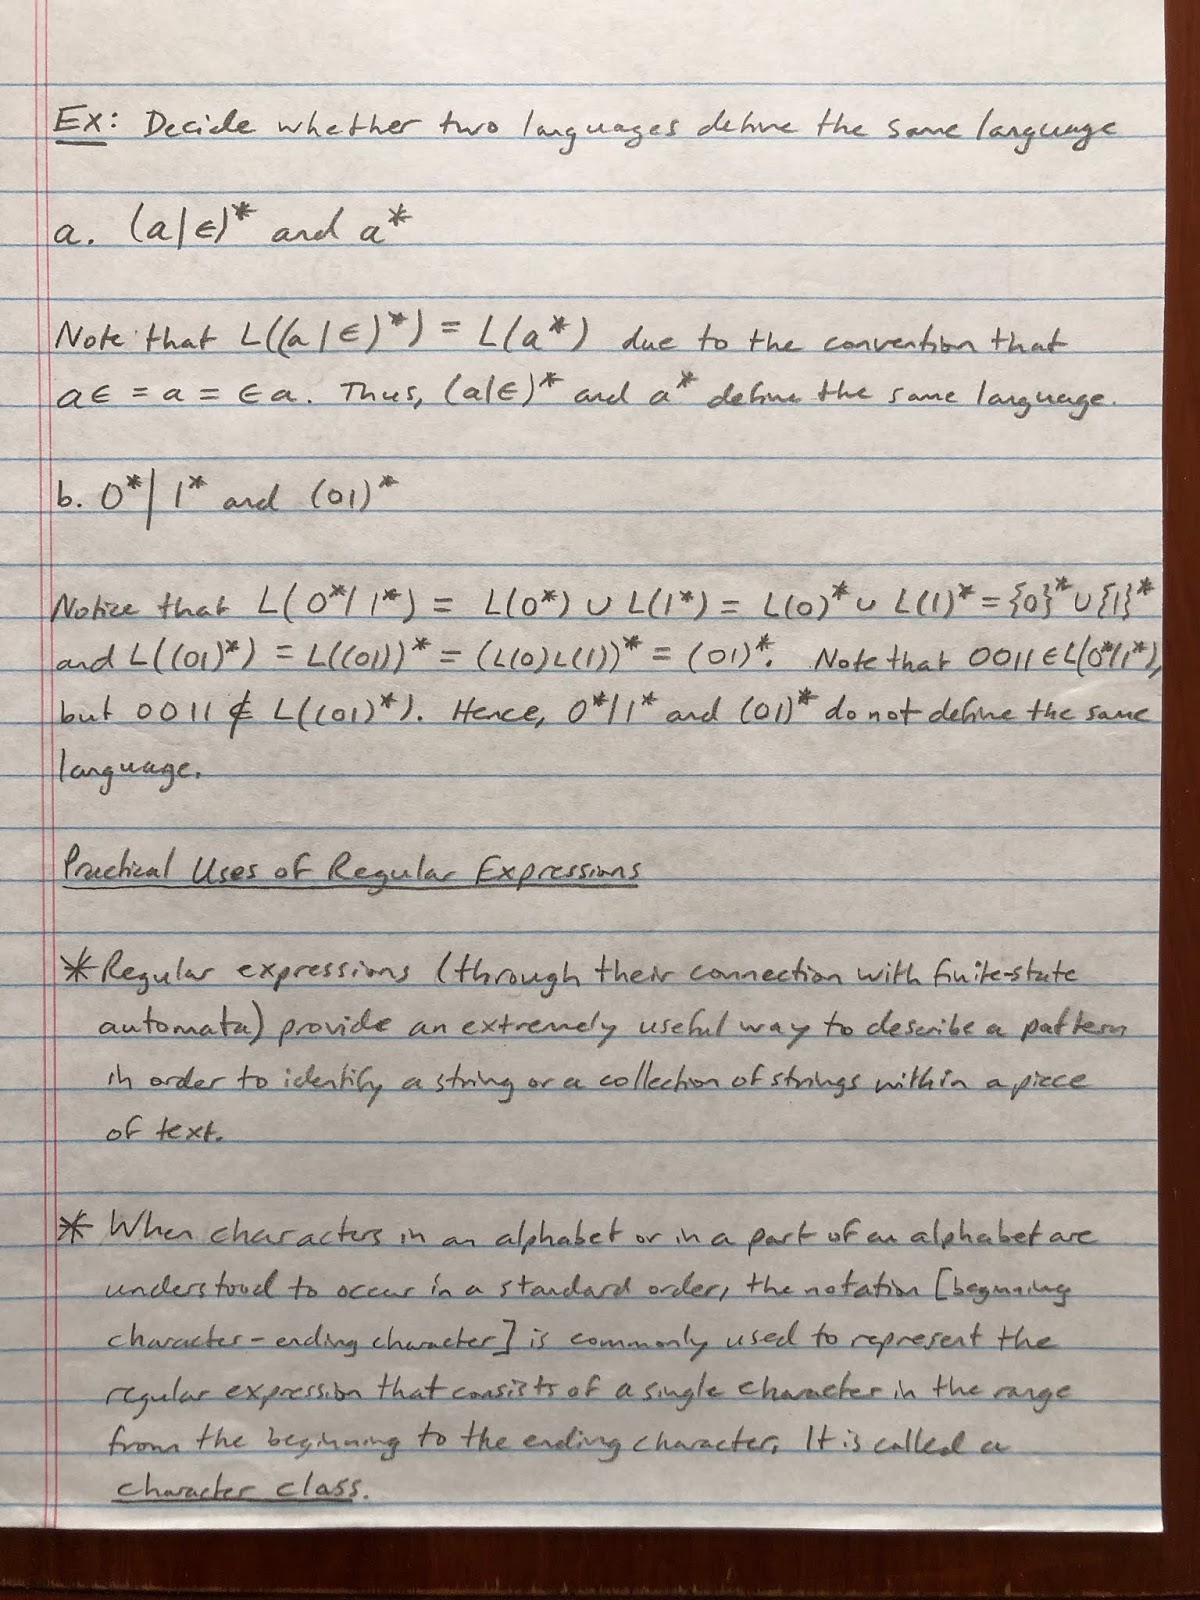 Ex: Decide whether two languages define the same language
a. (a|ϵ)* and a*
Note that L((a|ϵ)*) = L(a*) due to the convention that
aϵ = a = ϵa. Thus, (a|ϵ)* and a* define the same language.
b. 0*|1* and (01)*
Notice that L(0*|1*) = L(0*) ∪ L(1*) = L(0)* ∪ L(1)* = {0}* ∪ {1}*
and L((01)*) = L((01))* = (L(0)L(1))* = (01)*. Note that 0011 ∈ L(0*|1*),
but 0011 ∉ L((01)*). Hence, 0*|1* and (01)* do not define the same
language.
Practical Uses of Regular Expressions
* Regular expressions (through their connection with finite-state
automata) provide an extremely useful way to describe a pattern
in order to identify a string or a collection of strings within a piece
of text.
* When characters in an alphabet or in a part of an alphabet are
understood to occur in a standard order, the notation [beginning
character - ending character] is commonly used to represent the
regular expression that consists of a single character in the range
from the beginning to the ending character. It is called a
character class.